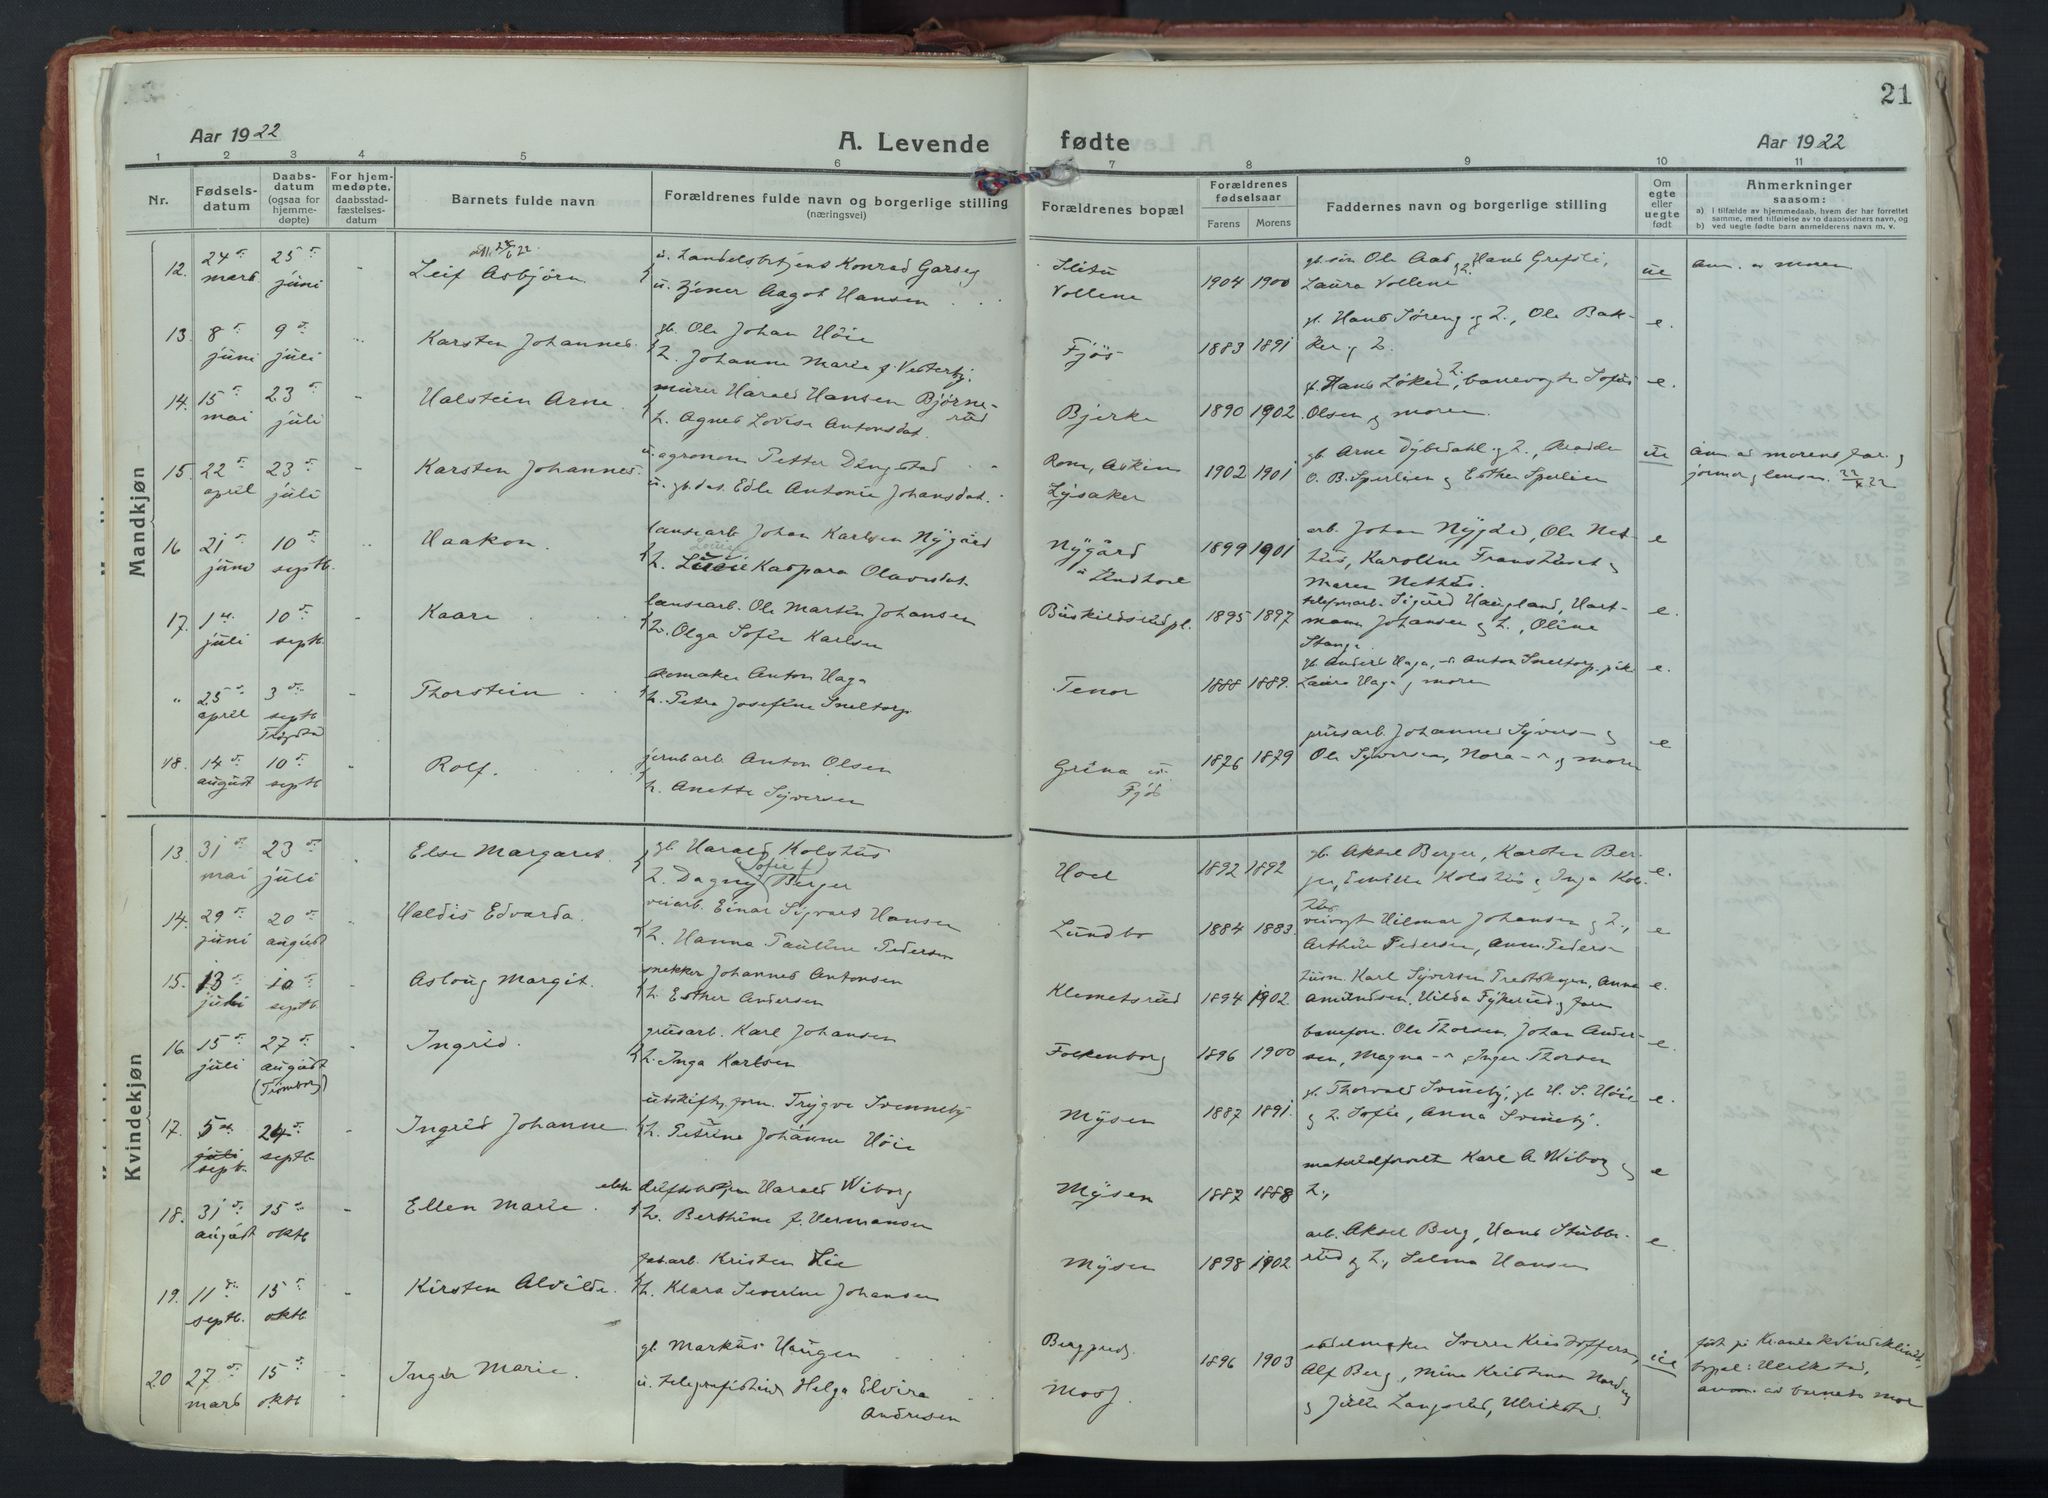 21
Aar 1922
A. Levende fødte
Aar 1922
1 2 3 4 5 6 7 8 9 10 11
Nr.
Fødsels-
datum
Daabs-
datum
(ogsaa for
hjemme-
døpte)
For hjem-
medøpte,
daabsstad-
fæstelses-
datum
Barnets fulde navn
Forældrenes fulde navn og borgerlige stilling
(næringsvei)
Forældrenes bopæl
Forældrenes
fødselsaar
Farens Morens
Faddernes navn og borgerlige stilling
Om
egte
eller
uegte
født
Anmerkninger
saasom:
a) I tilfælde av hjemmedaab, hvem der har forrettet
samme, med tilføielse av to daabsvidners navn, og
b) ved uegte fødte barn anmelderens navn m. v.
Mandkjøn
12. 24 mars 25 juni Leif Asbjørn
u. Konrad Garseg
u. Aagot Hansen
Slitu
Vollene
1904 1900
Ole Aas, Hans Grefsli,
Laura Vollene
ue
anm. av moren
13. 8 juni 9 juli Karsten Johannes
gb. Ole Johan Høie
h. Johanne Marie f. Vesterby.
Fjøs
1883 1891
gb. Hans Søreng og h., Ole Bak-
ker og h.
e.
14. 15 mai 23 juli Halstein Arne
murer Harald Hansen Bjørne-
rud
h. Agnes Lovise Antonsdat.
Bjerke
1890 1902
Hans Løken og h., banevogte Sofus
Olsen og moren.
e.
15. 22 april 23 juli Karsten Johannes
u. agronom Petter Dingstad
u. gb.dat. Edle Antonie Johansdat.
Rom, Askim
Lysaker
1902 1901
gb. Arne Dybedahl og h.,
O. B. Sperlien og Esther Sperlien
ue
anm. av morens far og
jormor 22/4 22
16 21 juni 10 septb. Haakon.
Johan Karlsen Nygård
h. Kaspara Olavesdat
Nygård
1899 1901
arb. Johan Nygård, Ole Net-
hus, Karoline Franshuset og
Maren Nethus.
e
17. 1 juli 10 septb. Kaare
Ole Martin Johansen
h. Olga Sofie Karlsen
Buskildsrudpl.
1895 1897
Sigurd Haugland, Hart-
mann Johansen og h., Oline
Stange.
e.
" 25 april 3 septb Trøgstad Thorstein
skomaker Anton Haga
h. Petra Josefine Sneltorp
Tenor
1888 1889.
gb. Anders Haga, Anton Sneltorp, pike
Laura Haga og moren
e.
18. 14 august 10 septb Rolf.
jernbarb Anton Olsen
h. Anette Syversen
Grina
Fjøs
1876 1879
grusarb. Johannes Syvers- og
Ole Syversen, Nora og moren
e
Kvindekjøn
13. 31 mai 23 juli Else Margaret
gb. Harald Kolshus
h. Dagny (Sofie) Berger
Hoel
1892 1892
gb. Aksel Berger, Karsten Ber-
ger, Emilie Kolshus og Inga Kols-
hus
e.
14. 29 juni 20 august Haldis Edvarda
veiarb. Einar Sigvart Hansen
h. Hanna Pauline Pedersen
Lundbo
1884 1883.
veivogt Hilmar Johansen og h.,
Arthur Pedersen, Anna Pedersen
e
15. 13 juli 10 septb. Aslaug Margit.
snekker Johannes Antonsen
h. Esther Andersen
Klemetsrud
1894 1902
husm. Karl Syversen Tredtskogen, Anna
Amundsen, Hilda Fykerud og faren
e.
16. 15 juli 27 august (Trømborg) Ingrid.
grusarb. Karl Johansen
h. Inga Karlsen
Folkenborg
1896 1900
baneform. Ole Thorsen, Johan Ander-
sen, Magna Inger Thorsen
e.
17. 5 juli septb. 24 septb. Ingrid Johanne
utskiftn. form. Trygve Svenneby
h. Petrine Johanne Høie
Mysen
1887 1891.
gb. Thorvald Svineby, gb. H. S. Høie
og h. Sofie, Anna Svineby.
e.
18. 31 august 15 oktb Ellen Marie
elekr. driftsbestyrer Harald Wiborg
h. Berthine f. Hermansen
Mysen
1887 1888
materialforvalt Karl A. Wiborg og
h.,
e
19. 11 septb. 15 oktb. Kirsten Alvilde.
fabarb. Kristen Lie
h. Klara Severine Johansen
Mysen
1898 1902
arb. Aksel Berg, Hans Stubbe-
rud og h., Selma Hansen
e.
20 27 mars 15 oktb Inger Marie.
gb. Markus Haugen
u. telegrafistinde Helga Elvira
Andresen
Moss.
1896 1903
sadelmaker Sverre Kristoffersen,
Alf Berg, Mina Kristina Norderg
og Julie Langsrud, Ulrikstad.
ue
født på Kvindeklinik,
bopæl: Ulrikstad,
anm. av barnets mor